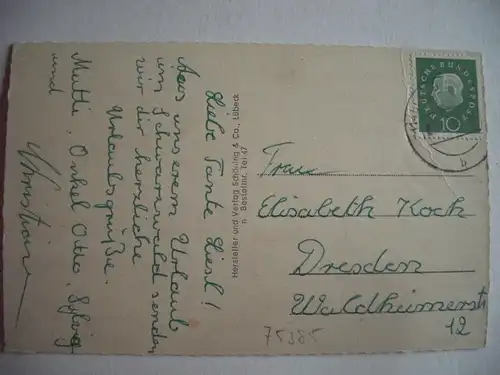 Liebe Tante Liesl!
Aus unserem Urlaub
im Schwarzwald senden
wir dir herzliche
Urlaubsgrüße.
Mutti, Onkel Otto, Sylvia
und
Christian
Hersteller und Verlag Schöning & Co., Lübeck
n Bestellnr. Tei 47
DEUTSCHE BUNDESPOST
10
b
Frau
Elisabeth Koch
Dresden
Waldheimerstr
12
75385